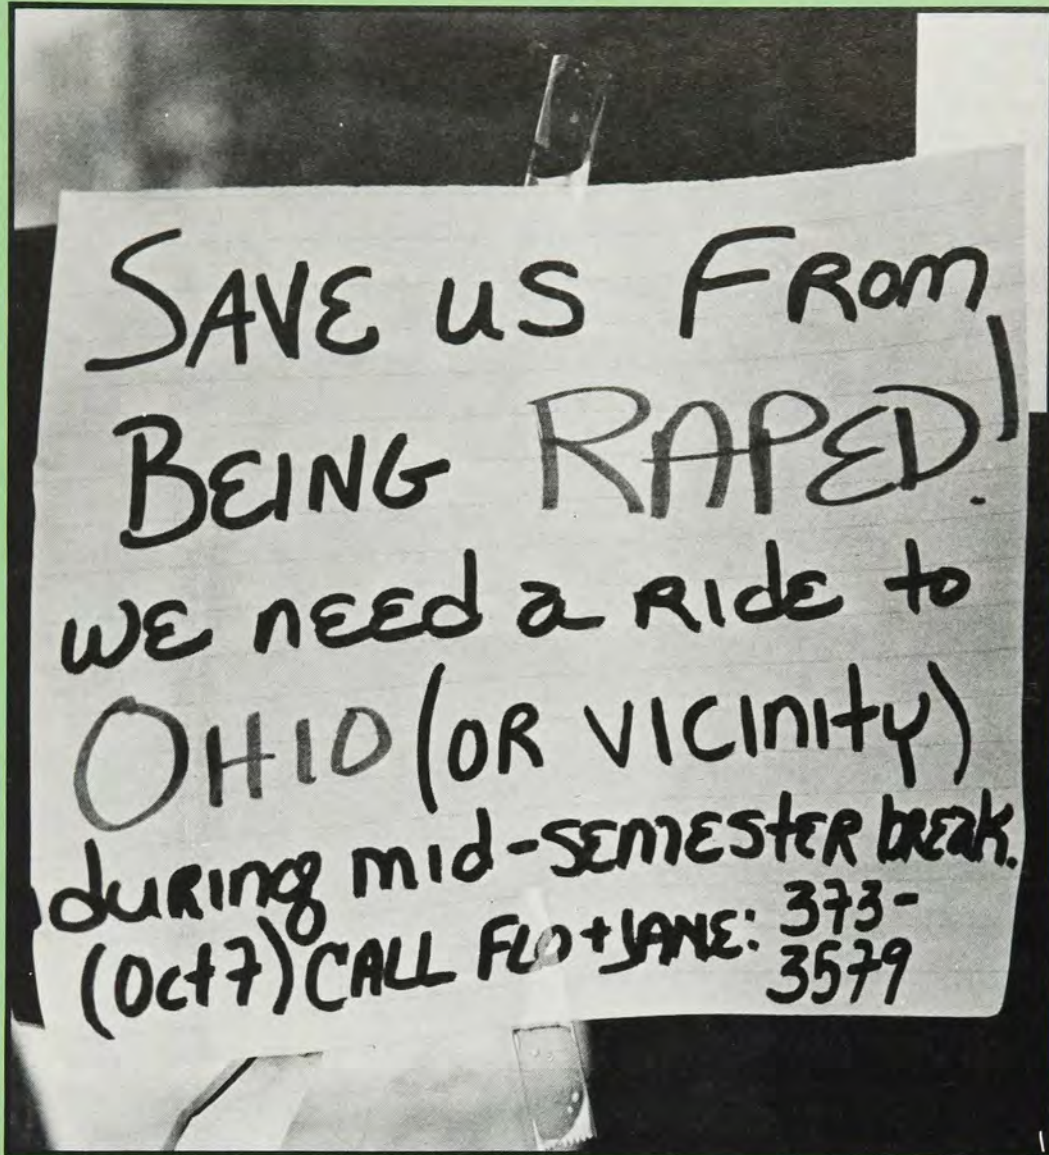 SAVE US FROM
BEING RAPED!
WE NEED a RIDE to
OHIO (OR VICINITY)
dURING mid-SEMESTER bREAK.
(Oct 7) CALL FLO + JANE: 373-
3579